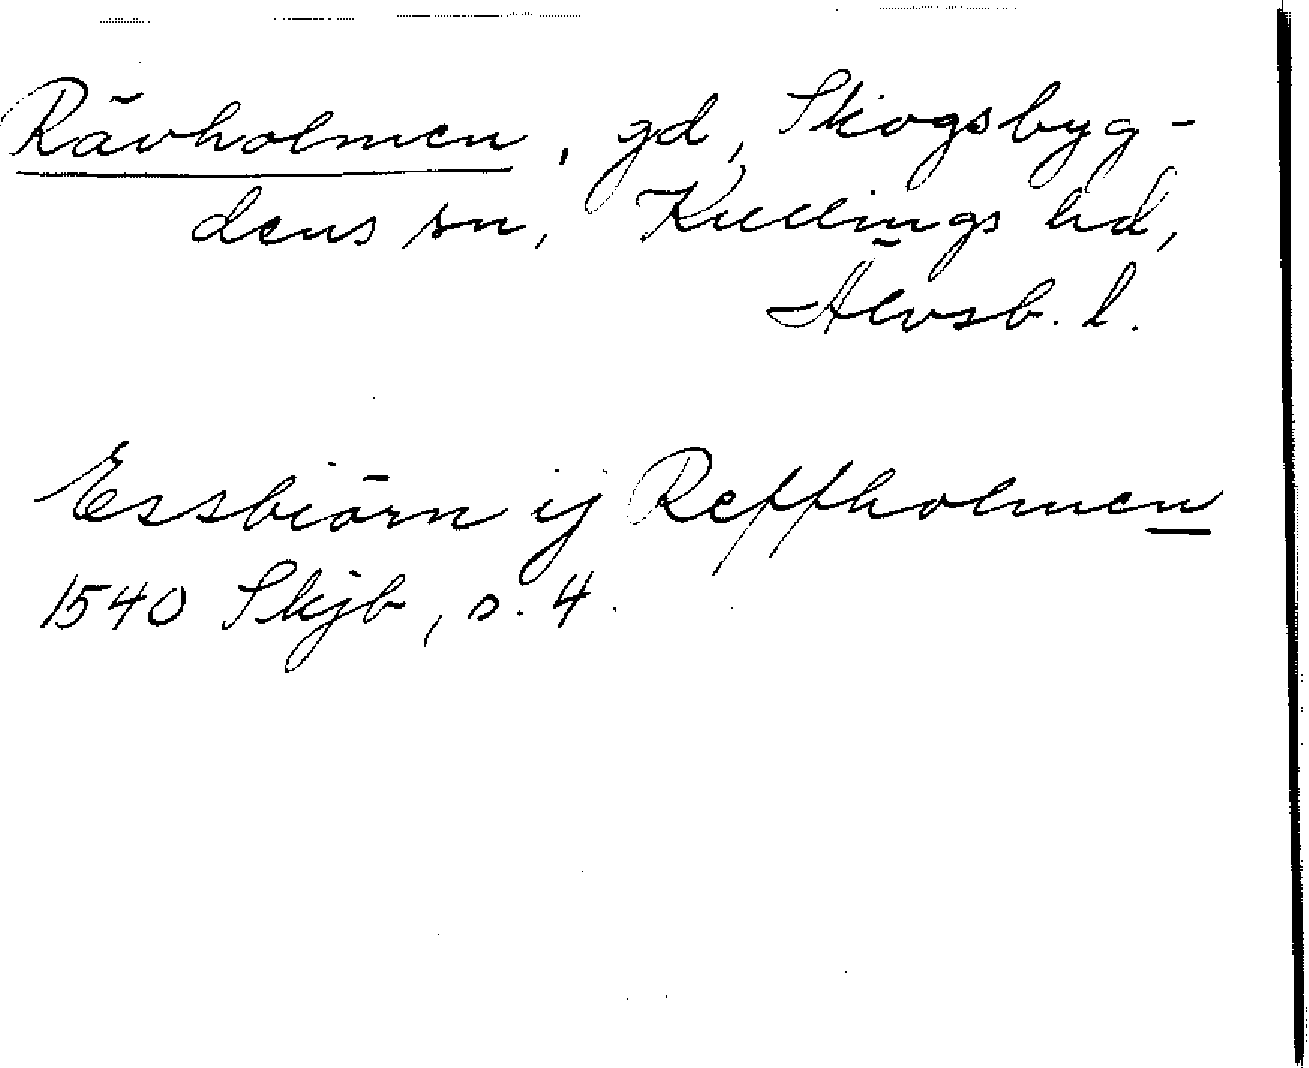 Rävholmen, gd, Skogsbyg-
dens sn, Kullings hd,
Älvsb. l.
Essbiörn ij Reffholmen
1540 Skjb, s. 4.